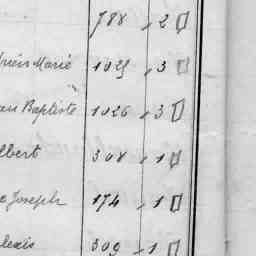 788 2
Marie 1025 3
Baptiste 1026 3
lbert 308 1
Joseph 174 1
lexis 309 1